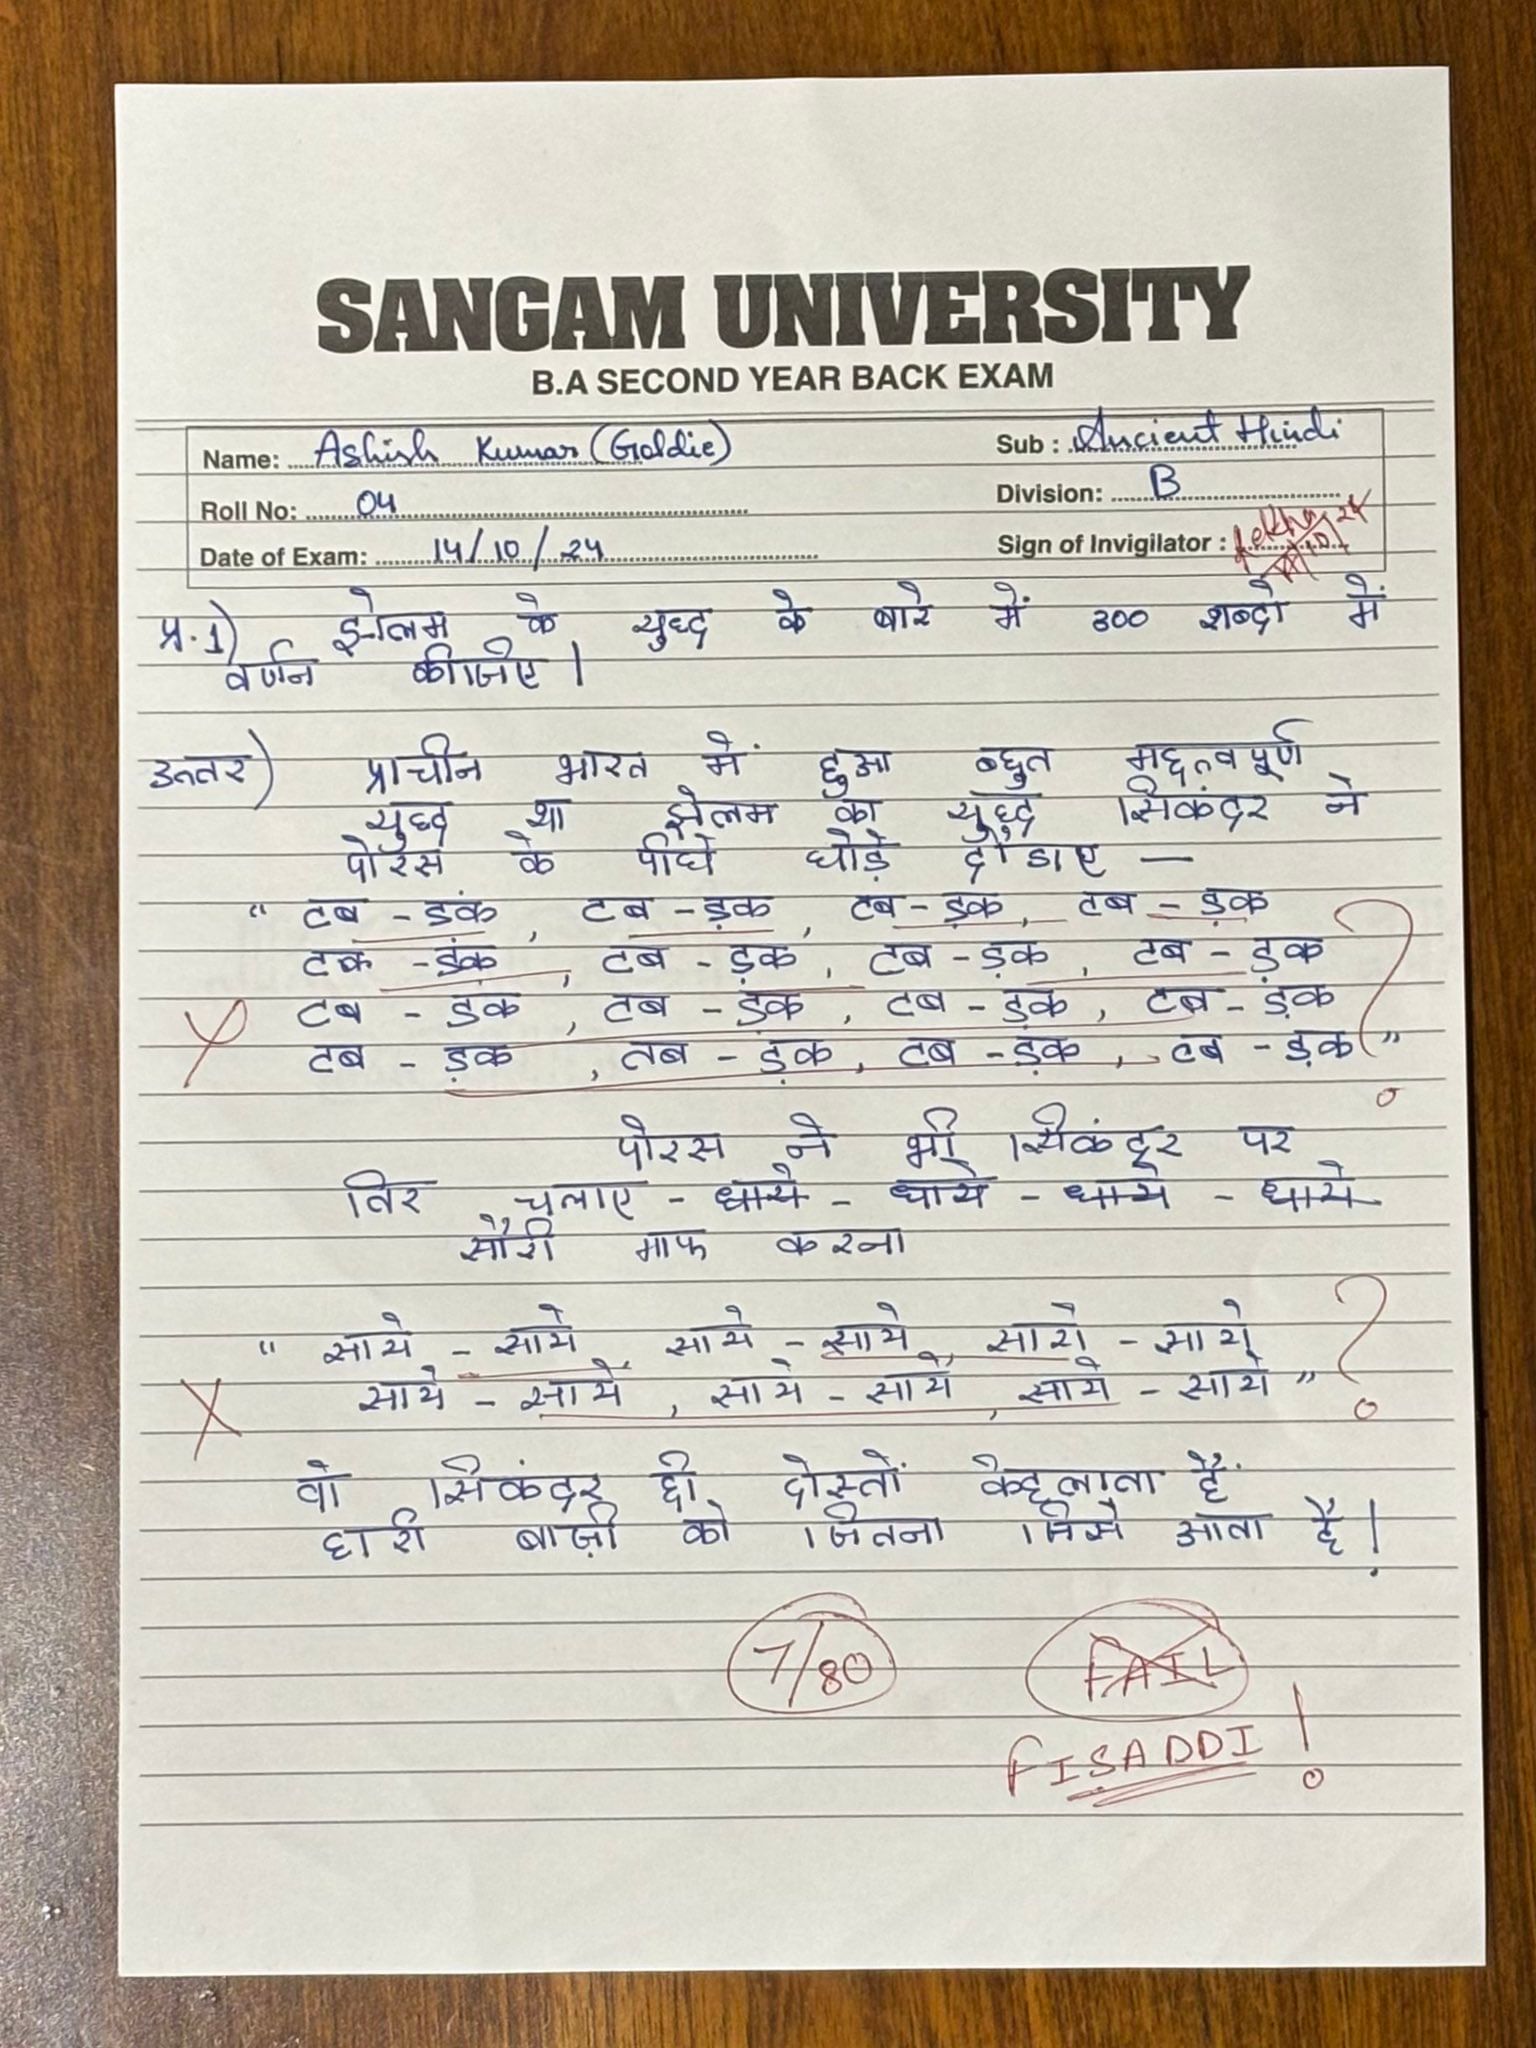 SANGAM UNIVERSITY
B.A SECOND YEAR BACK EXAM
Name: Ashish Kumar (Goldie) Sub : Ancient Hindi
Roll No: 04 Division: B
Date of Exam: 14/10/24 Sign of Invigilator :
प्र.1) झेलम के युध्द के बारे में 300 शब्दो में
वर्णन कीजिए।
उत्तर) प्राचीन भारत में हुआ बहुत महत्वपूर्ण
युध्द था झेलम का युध्द सिकंदर ने
पोरस के पीछे घोड़े दौडाए —
" टब - डंक, टब - ड़क, टब - ड़क, टब - ड़क
टक - डंक, टब - ड़क, टब - ड़क, टब - ड़क
टब - ड़क, टब - ड़क, टब - ड़क, टब - ड़क
टब - ड़क, तब - ड़क, टब - ड़क, टब - ड़क "
?
X
पोरस ने भी सिकंदर पर
तिर चलाए - धाये - धाये - धाये - धाये
सौरी माफ करना
" साये - साये साये - साये, साये - साये
साये - साये, साये - साये, साये - साये "
?
X
वो सिकंदर ही दोस्तों केहलाता हैं
हारी बाज़ी को जितना जिसे आता है!
7/80 FAIL
FISADDI!